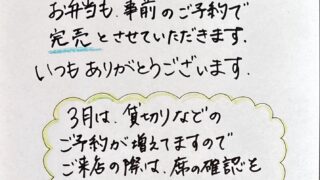 お弁当も、事前のご予約で
完売とさせていただきます。
いつもありがとうございます。
3月は、貸切りなどの
ご予約が増えてますので
ご来店の際は、席の確認を